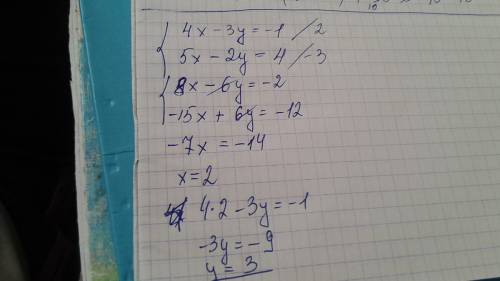 4x - 3y = -1 /2
5x - 2y = 4 /-3
8x - 6y = -2
-15x + 6y = -12
-7x = -14
x = 2
4·2 - 3y = -1
-3y = -9
y = 3